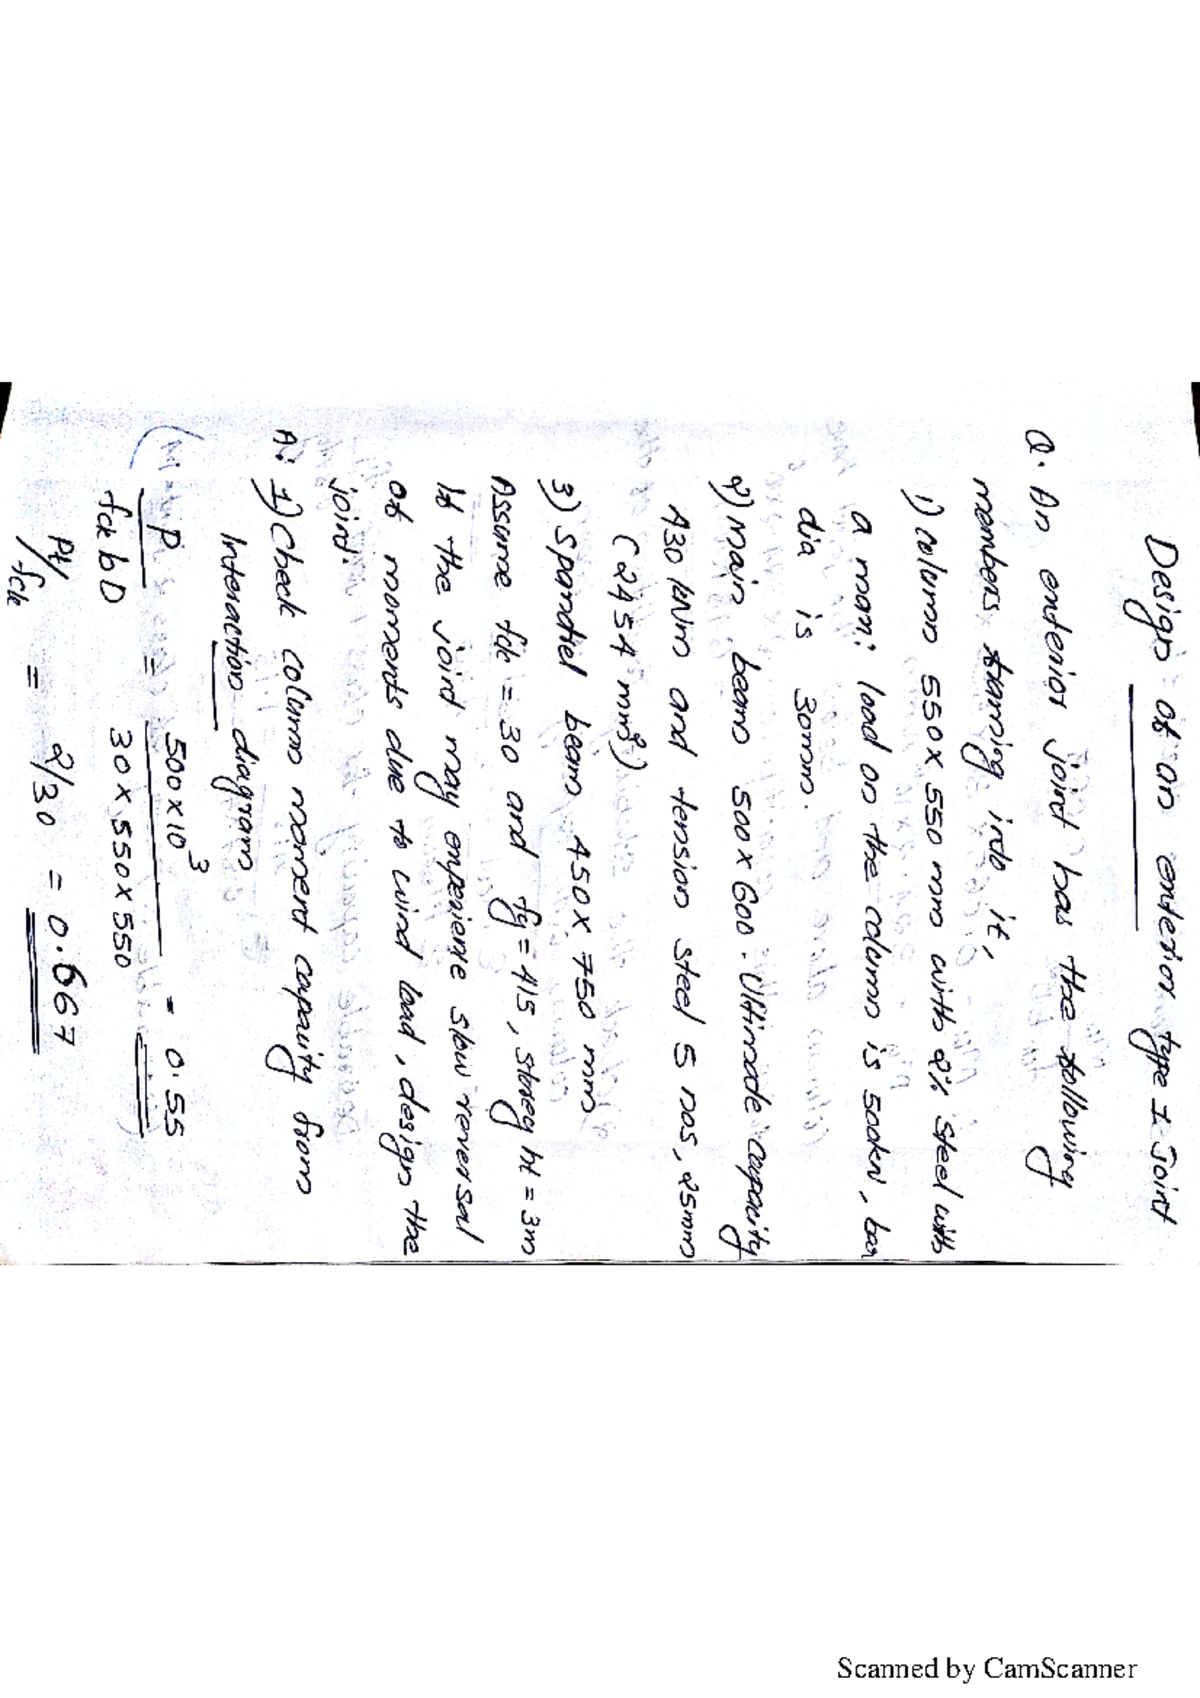 Design of an exterior type 1 Joint
Q. An exterior joint has the following
members framing into it,
1) Column 550 x 550 mm with 2% steel with
a mom: load on the column is 500kN, bar
dia is 30mm.
2) Main beam 500 x 600. Ultimate capacity
430 kNm and tension steel 5 nos, 25mm
(2454 mm²)
3) Spandrel beam 450 x 750 mm
Assume fck = 30 and fy = 415, storey ht = 3m
If the joint may experience slow reversal
of moments due to wind load, design the
joint.
A: 1) Check column moment capacity from
Interaction diagram
P / fck b D = 500 x 10³ / 30 x 550 x 550 = 0.55
Pt/fck = 2/30 = 0.667
Scanned by CamScanner